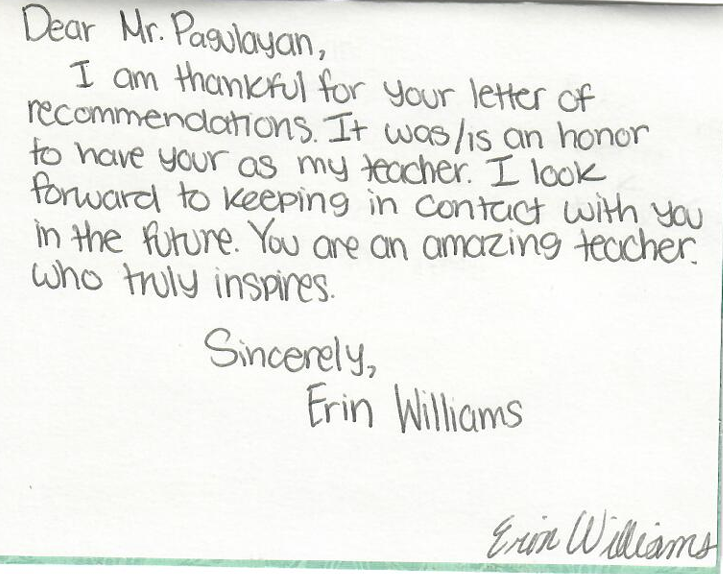 Dear Mr. Pagulayan,
I am thankful for your letter of
recommendations. It was/is an honor
to have your as my teacher. I look
forward to keeping in contact with you
in the future. You are an amazing teacher.
who truly inspires.
Sincerely,
Erin Williams
Erin Williams